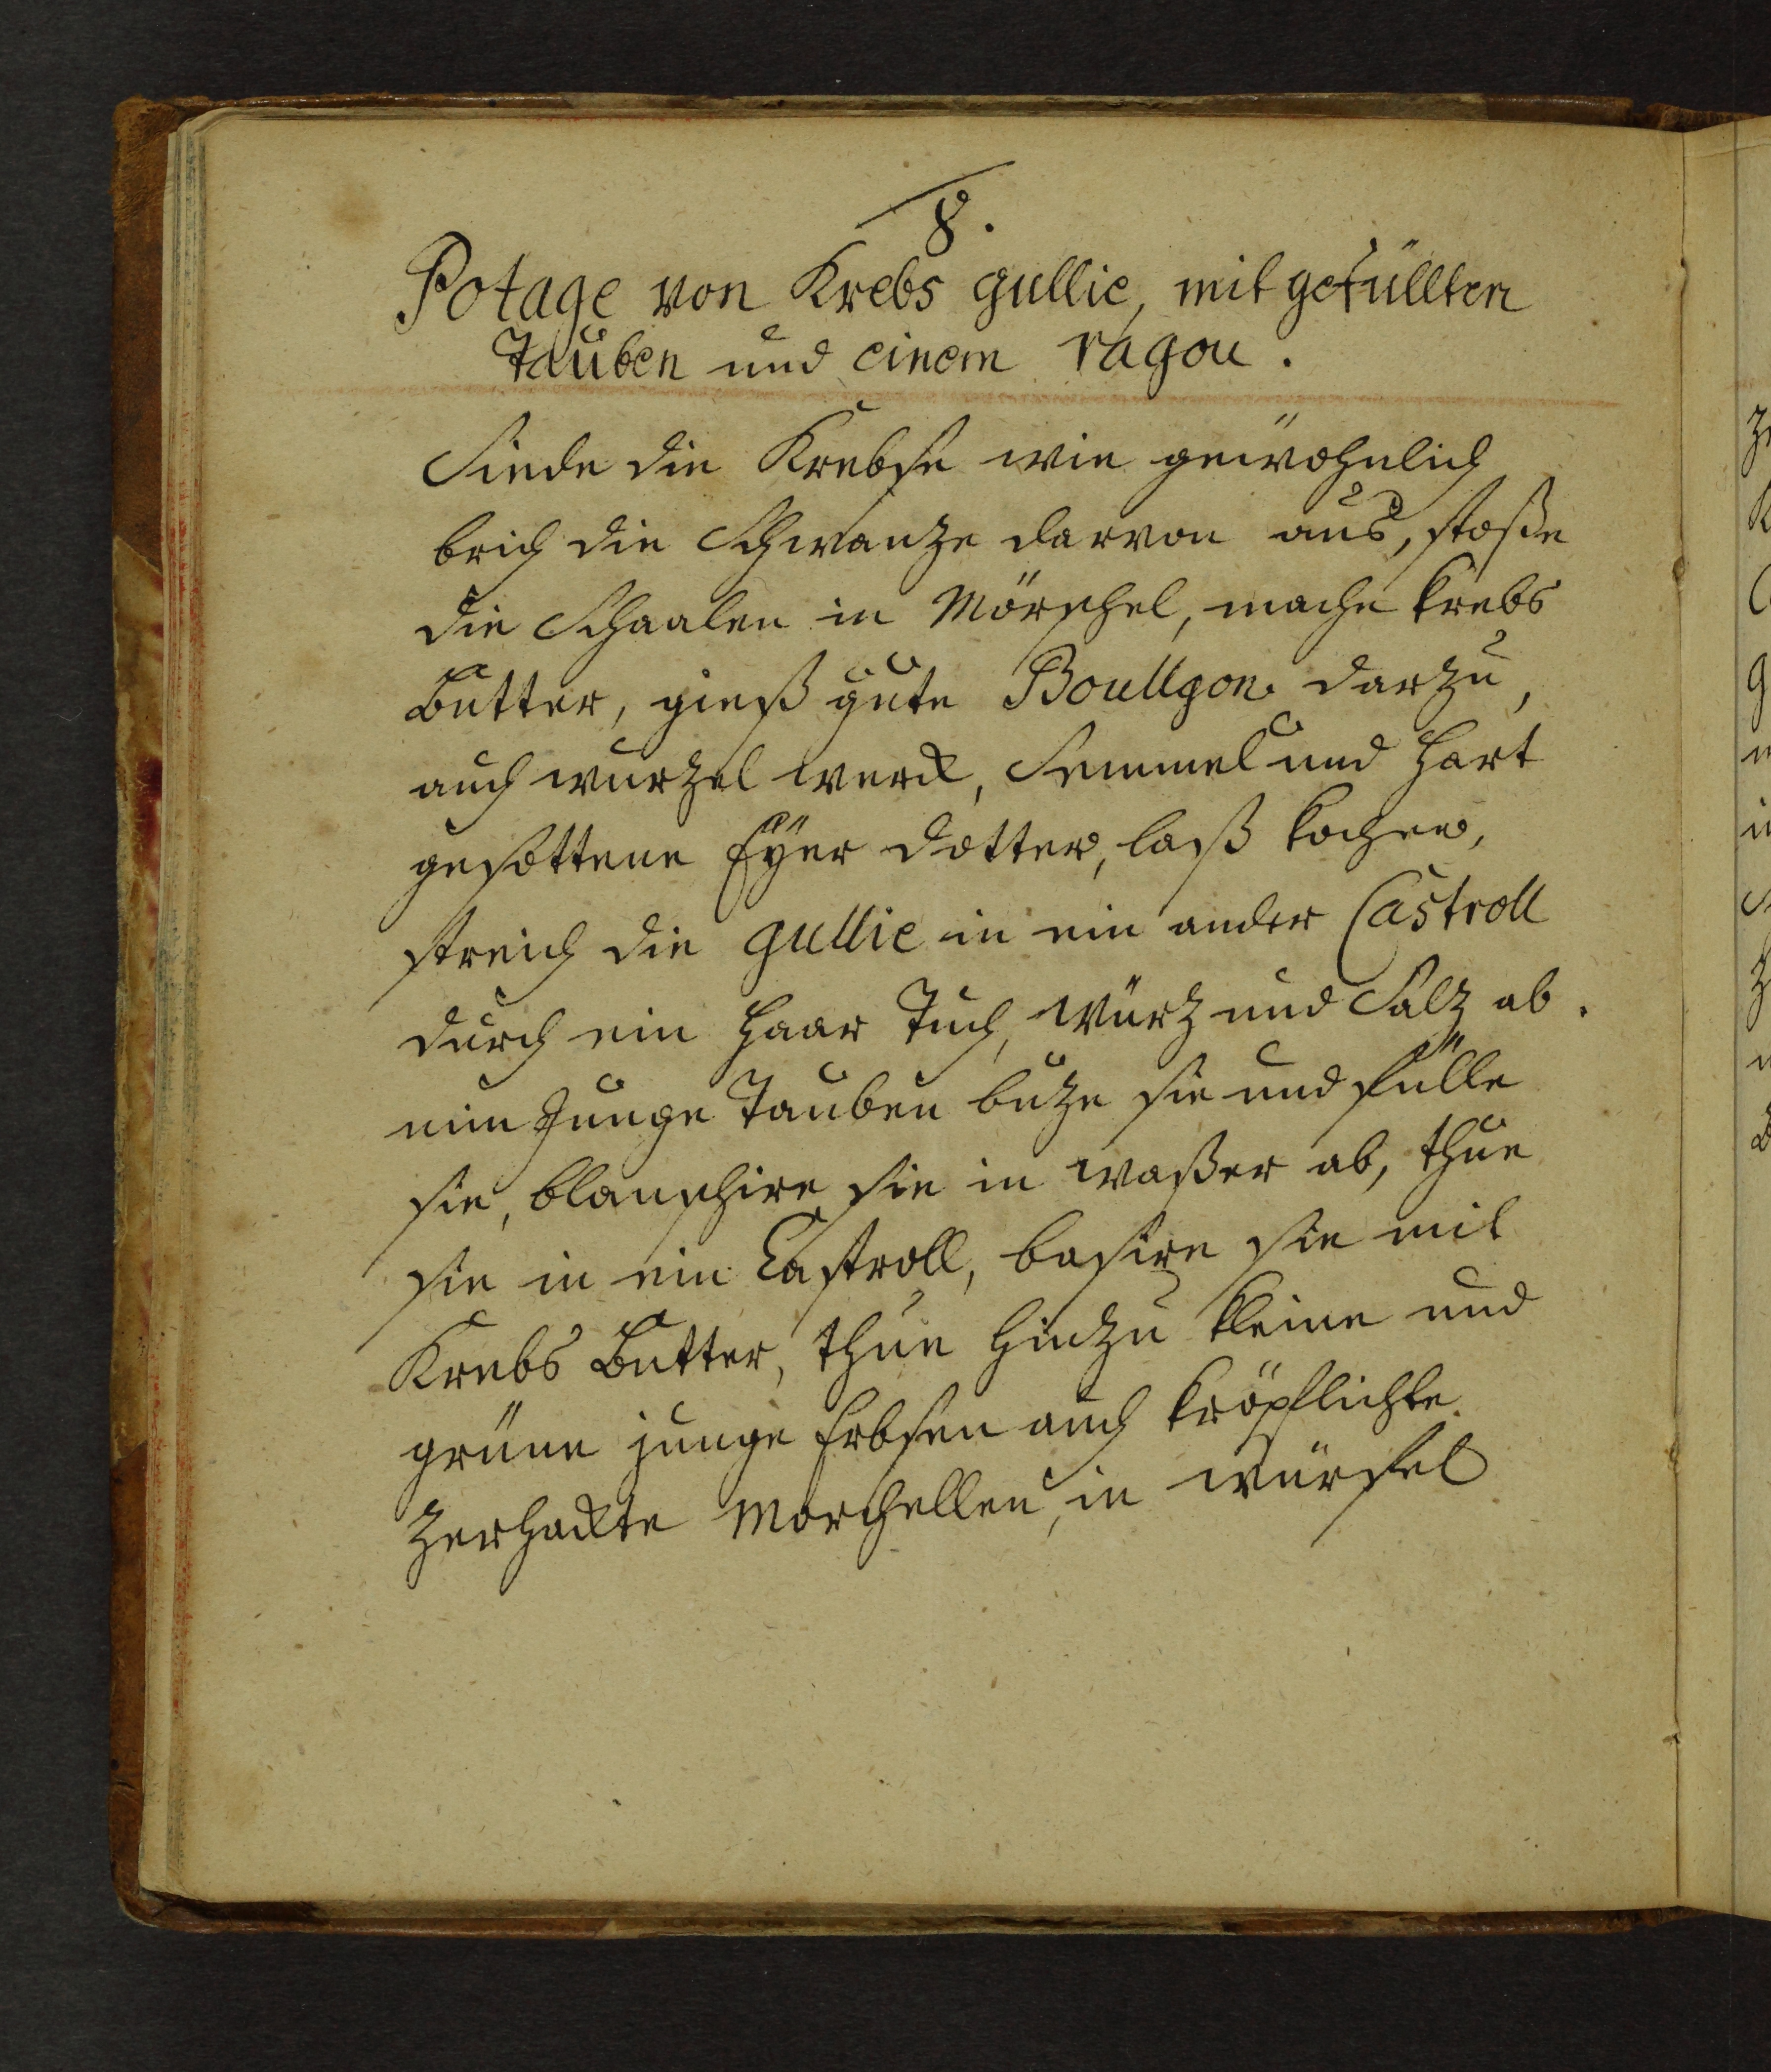 8.
Potage von Krebs gullie, mit gefüllten
Tauben und einem ragou.
Siede die Krebse wie gewöhnlich
brich die Schwanze darvon aus, stoße
die Schaalen in Mörschel, mache krebs
Butter, gieß gute Boullgon darzu,
auch wurzel werck, Semmel und hart
gesottene Eÿer dotter, laß kochen,
streich die gullie in ein ander Castroll
durch ein haar Tuch, würz und Salz ab.
nim Junge Tauben buze sie und fülle
sie, blanschire sie in waßer ab, thue
sie in ein Castroll, basire sie mit
Krebs Butter, thue hinzu kleine und
grüne junge Erbsen auch kröpflichte
zerhackte Morchellen, in würfel